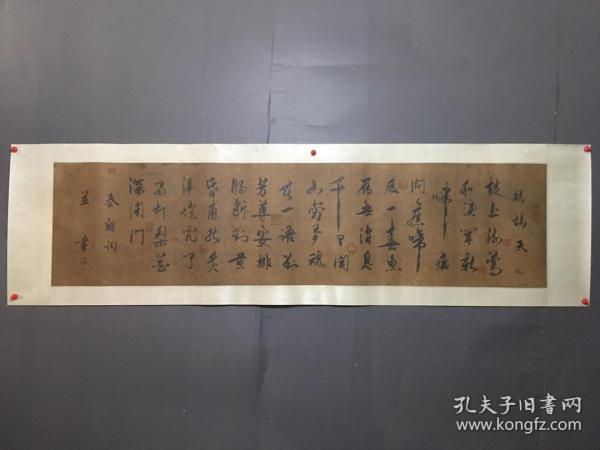 鷓鴣天
枝上流鶯
和淚聞新
啼痕
間舊啼
痕一春魚
雁無消息
千里關
山勞夢魂
無一語對
芳尊安排
腸斷到黃
昏甫能炙
得燈兒了
雨打梨花
深閉門
秦觀詞
書
孔夫子旧書网
www.kongfz.com